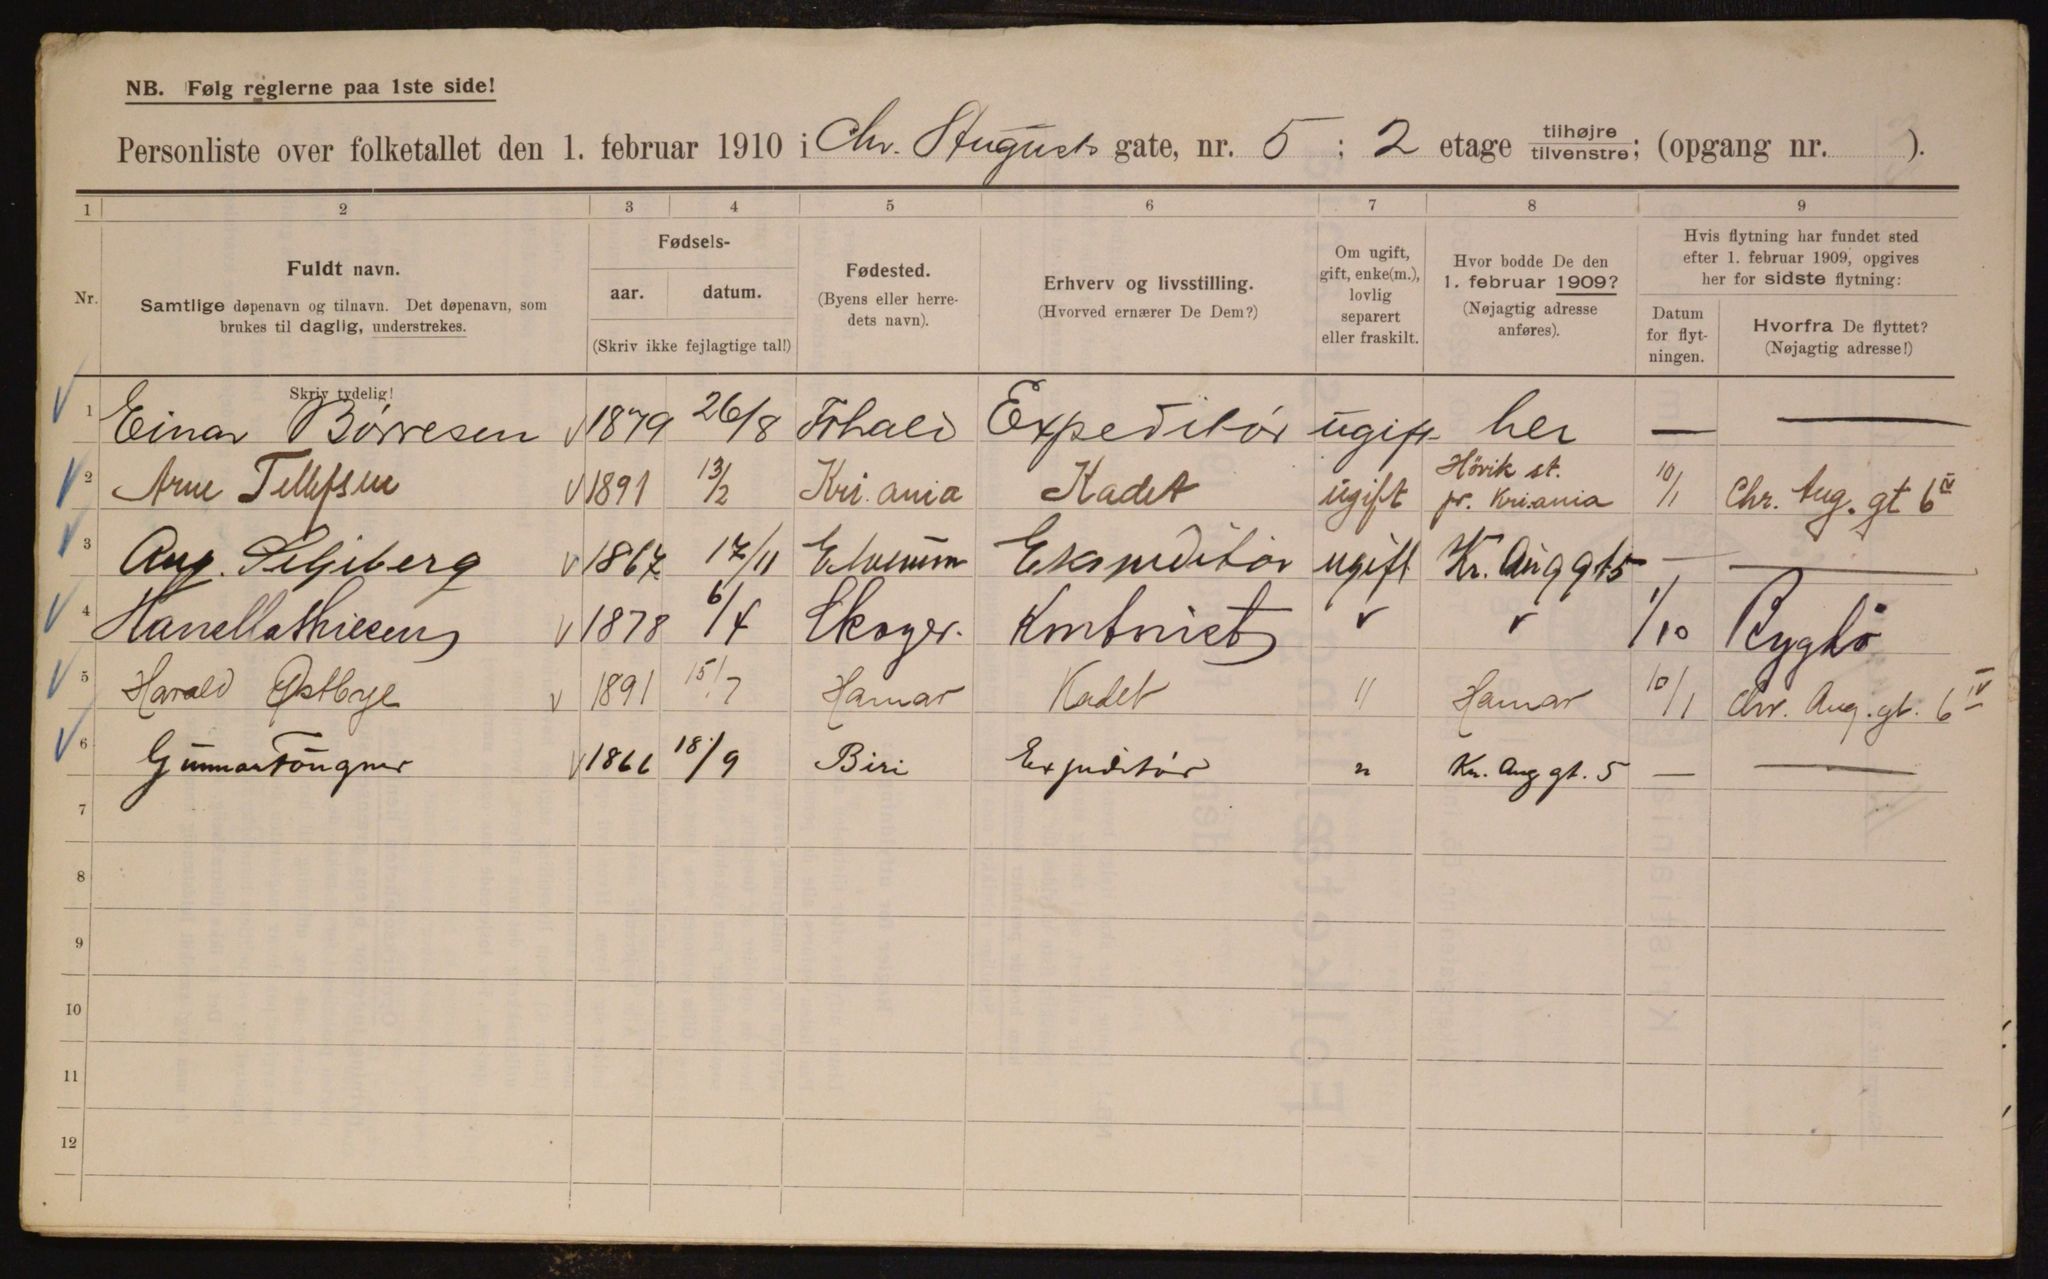 NB. Følg reglerne paa 1ste side!
Personliste over folketallet den 1. februar 1910 i Chr. Augusts gate, nr. 5 ; 2 etage tilhøjre tilvenstre; (opgang nr. ).
1 2 3 4 5 6 7 8 9
Nr.
Fuldt navn.
Samtlige døpenavn og tilnavn. Det døpenavn, som
brukes til daglig, understrekes.
Skriv tydelig!
Fødsels-
aar. datum.
(Skriv ikke fejlagtige tal!)
Fødested.
(Byens eller herre-
dets navn).
Erhverv og livsstilling.
(Hvorved ernærer De Dem?)
Om ugift,
gift, enke(m.),
lovlig
separert
eller fraskilt.
Hvor bodde De den
1. februar 1909?
(Nøjagtig adresse
anføres).
Hvis flytning har fundet sted
efter 1. februar 1909, opgives
her for sidste flytning:
Datum
for flyt-
ningen.
Hvorfra De flyttet?
(Nøjagtig adresse!)
1 Einar Børresen 1879 26/8 Frhald Expeditør ugift her — —
2 Arne Tellefsen 1891 13/2 Kri.ania Kadet ugift Høvik st. pr. Kri.ania 10/1 Chr. Aug. gt 6 IV
3 Aug. Seljeberg 1867 17/11 Elverum Ekspeditør ugift Kr. Aug gt 5 — —
4 Hans Mathiesen 1878 6/4 Skoger. Kontorist " " 1/10 Rygbø
5 Harald Østbye 1891 15/7 Hamar Kadet " Hamar 10/1 Chr. Aug. gt. 6 IV
6 Gunnar Fougner 1866 18/9 Biri Expeditør " Kr. Aug gt. 5 — —
7
8
9
10
11
12